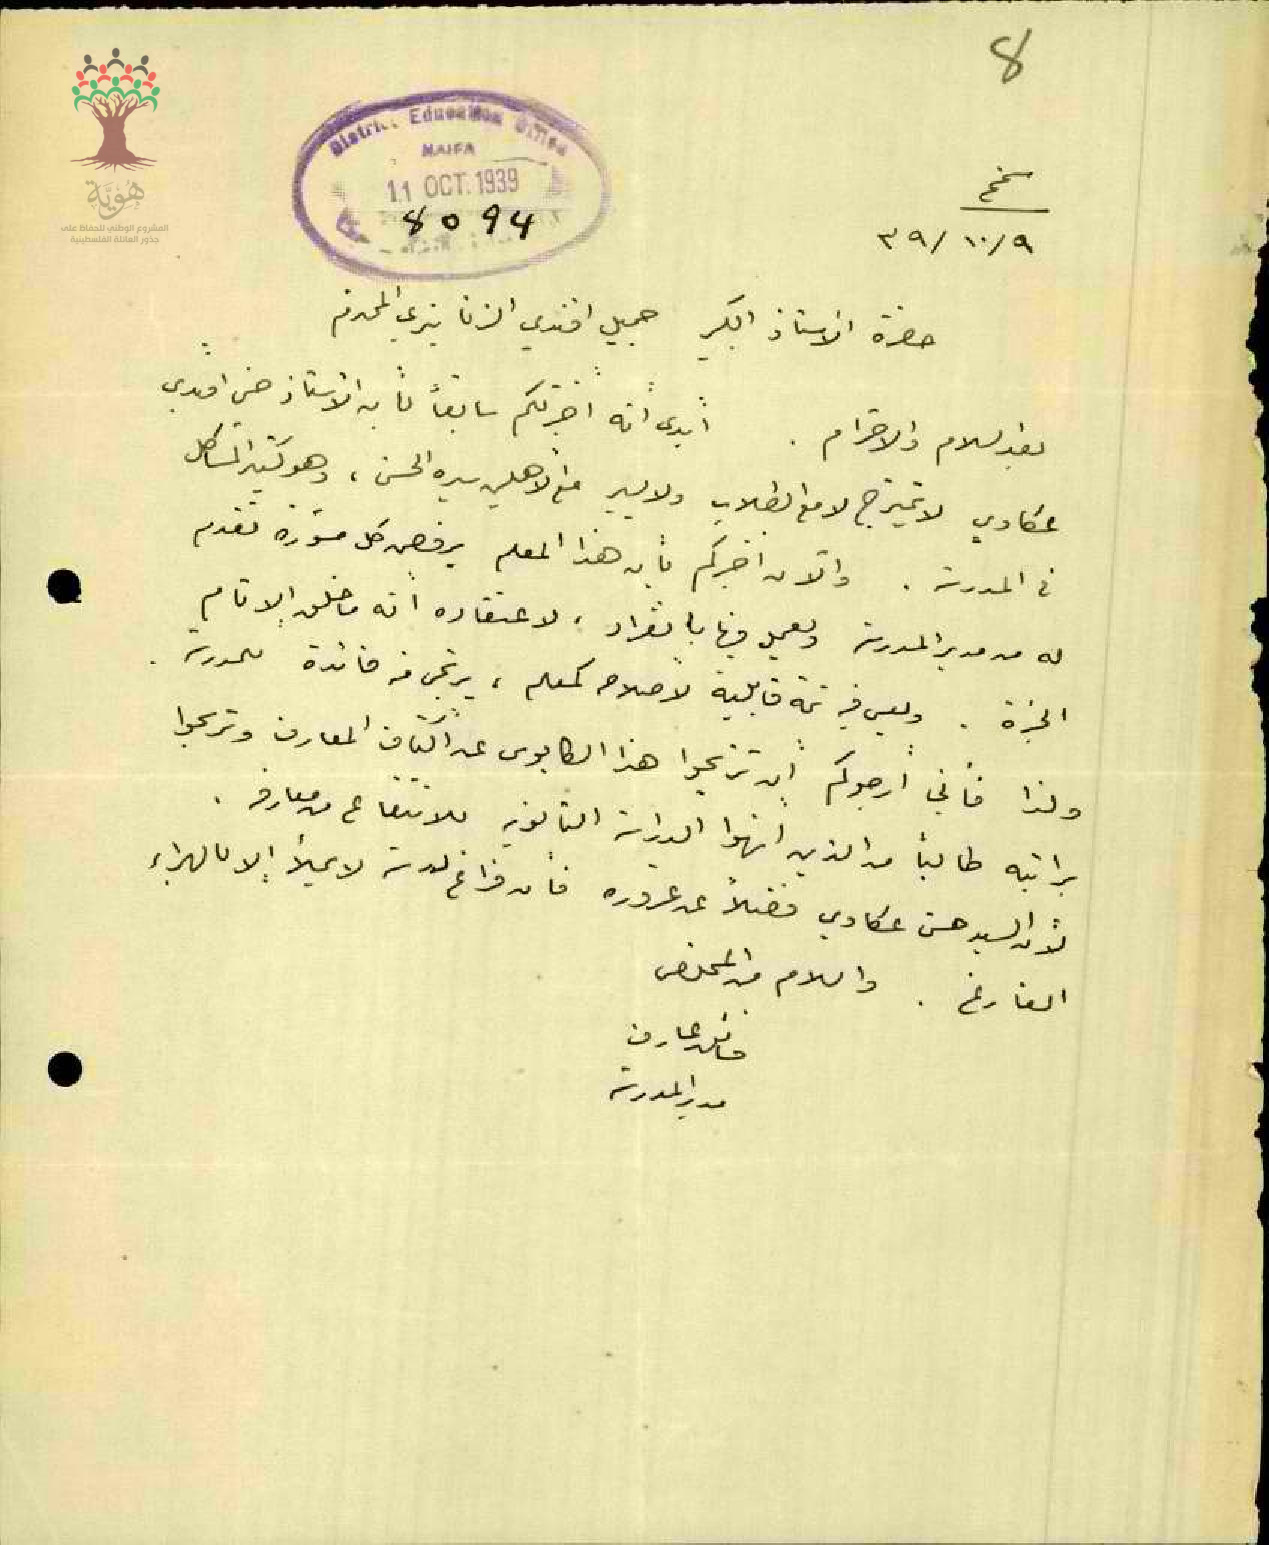 8
هُوِيَّة
المشروع الوطني للحفاظ على
جذور العائلة الفلسطينية
District Education Office
HAIFA
11 OCT. 1939
8094
٣٩/١٠/٩
حضرة الاستاذ الكبير جميل افندي الزنانيري المحترم
بعد السلام والاحترام . أبدي أنه أخبرتكم سابقاً بأن الاستاذ حسن افندي
عكاوي لا يمتزج لا مع الطلاب ولا يسير مع الأهلين سيره الحسن ، وهو كثير المشاكل
في المدرسة . والآن أخبركم بأن هذا المعلم يرفض كل مشورة تقدم
له من مدير المدرسة ويعمل فيها بانفراد ، لاعتقاده أنه ما خلق إلا تام
الخبرة . وليس فيه ثمة قابلية لاصلاحه كمعلم ، يرتجى منه فائدة للمدرسة .
ولذا فأني أرجوكم أن تزيحوا هذا الكابوس عن أكتاف المعارف وتريحوا
براتبه طالباً من الذين انهوا الدراسة الثانوية للانتفاع من معارفه .
لأن السيد حسن عكاوي فضلاً عن غروره فأن فراغ لا يملأ إلا بالهراء
الفارغ . والسلام من المخلص
عارف
مدير المدرسة